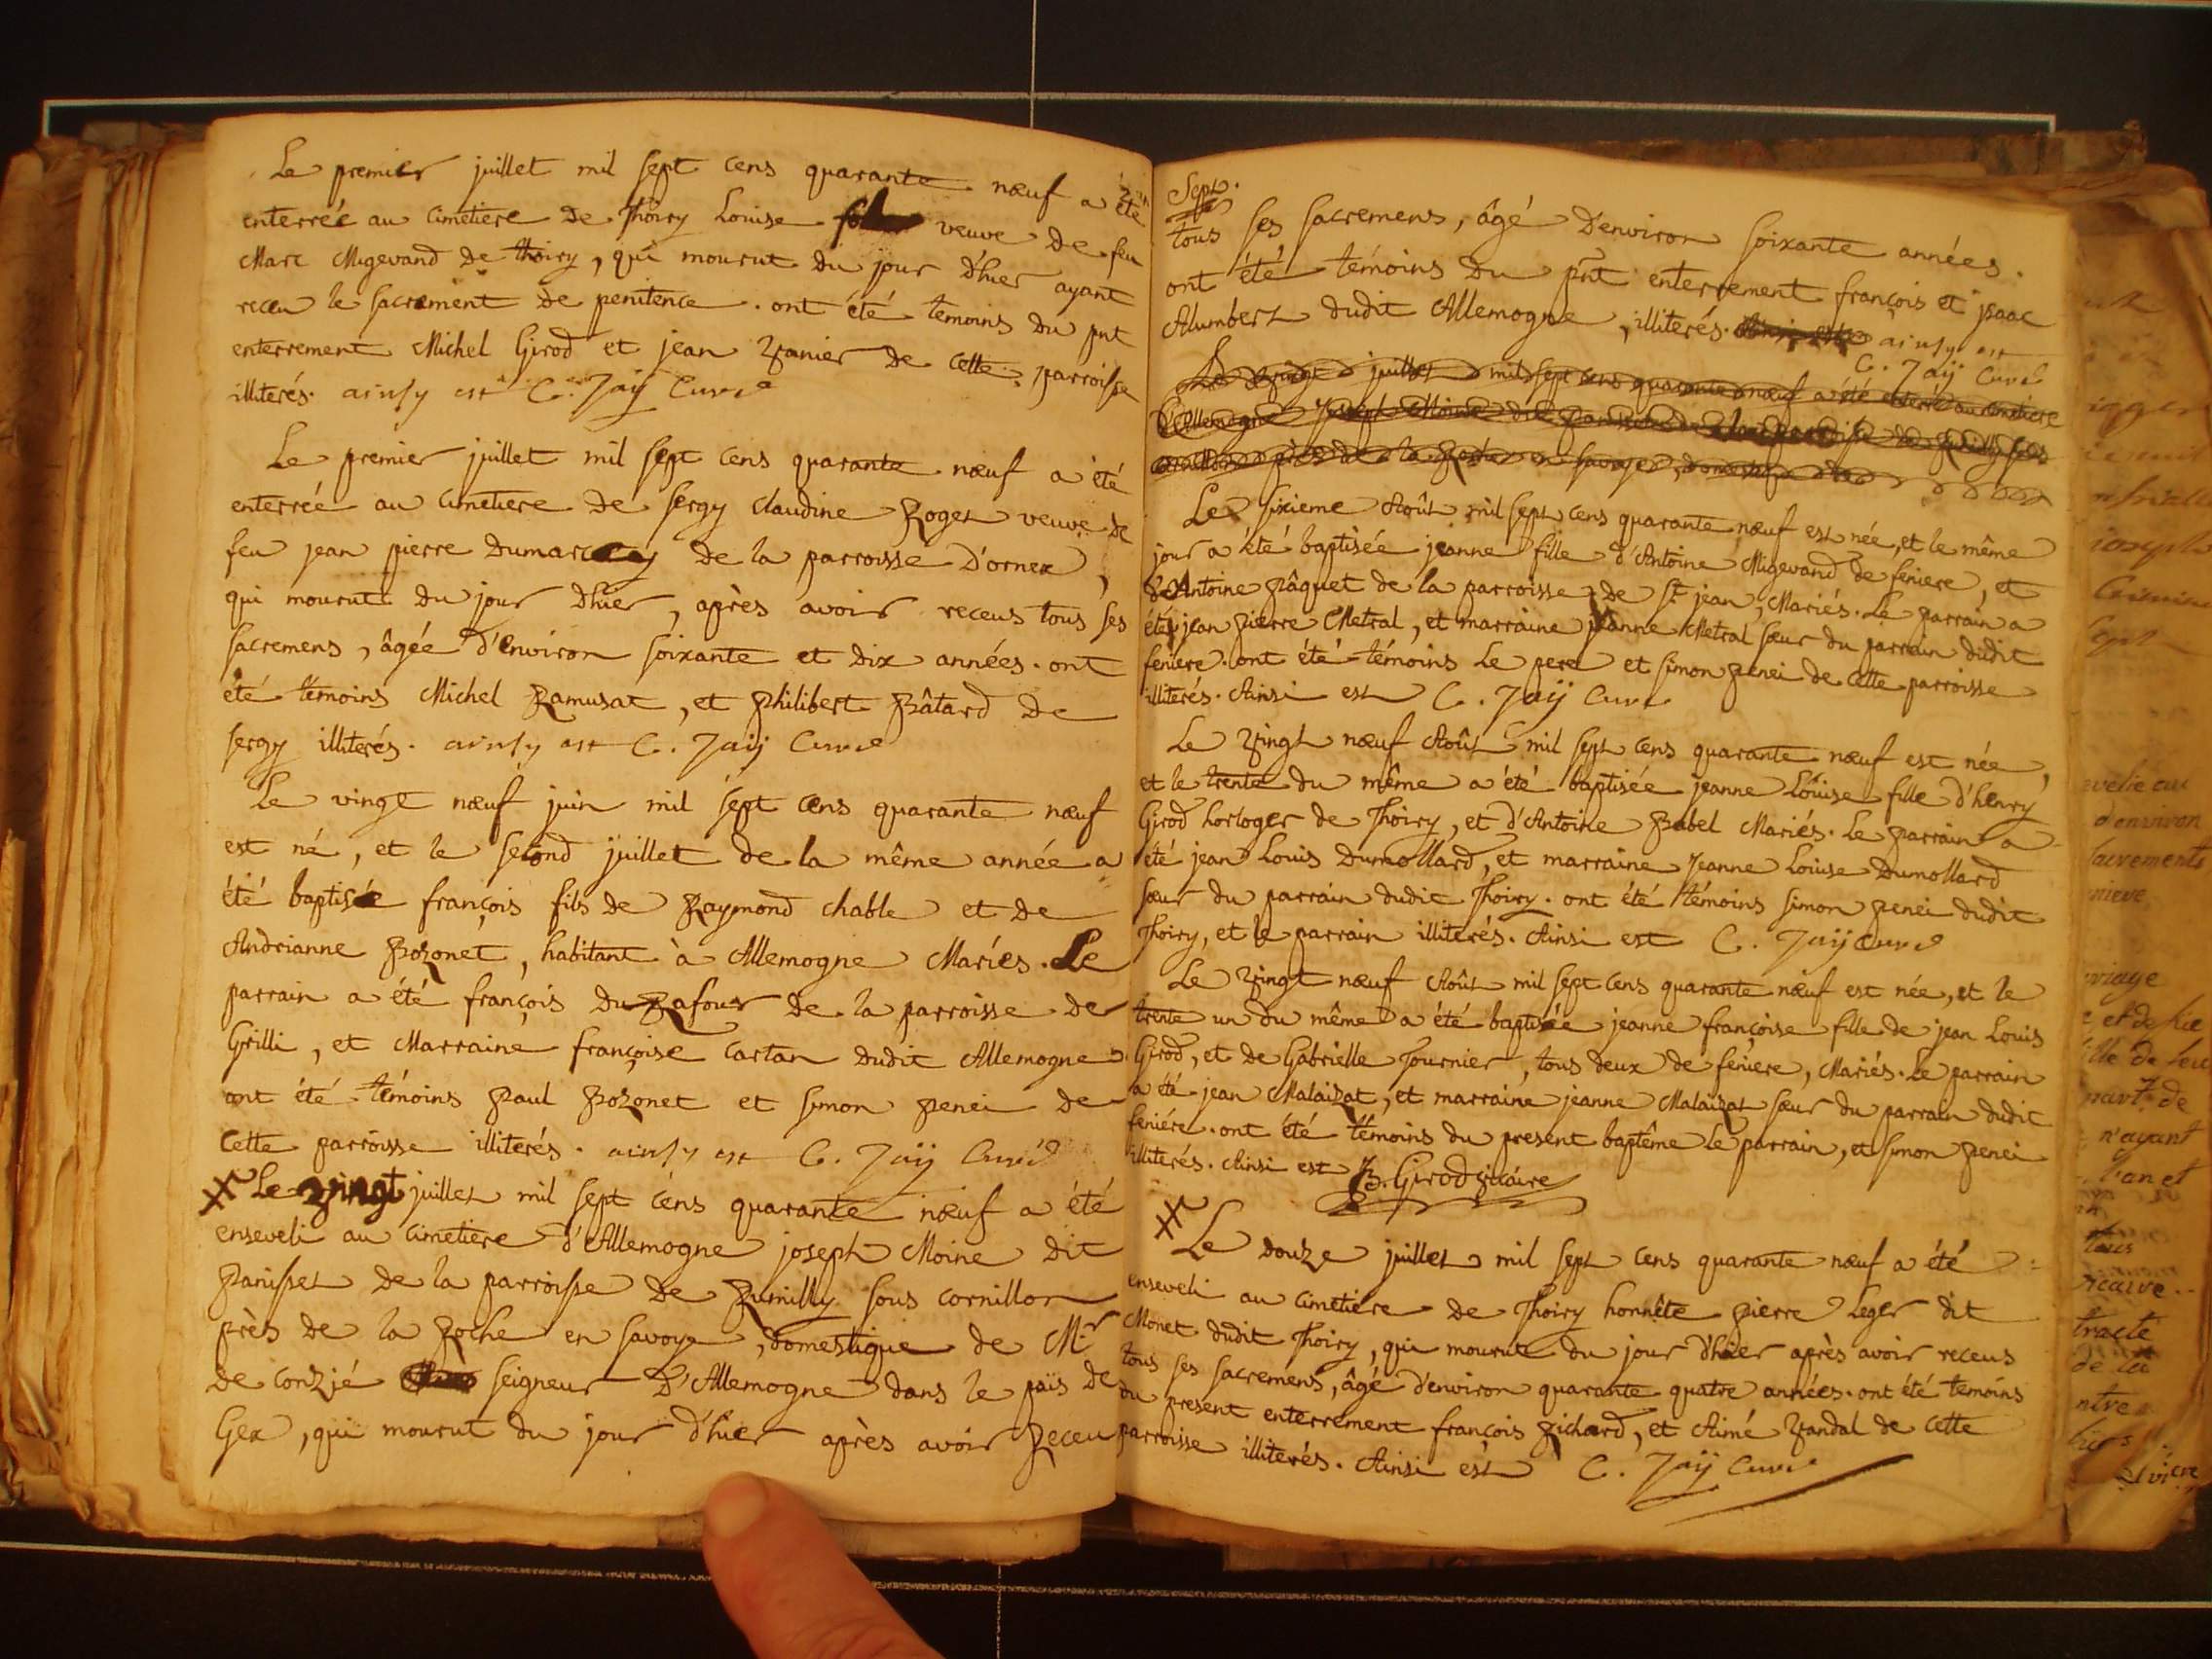 Le premier juillet mil sept cens quarante nœuf a été
enterrée au cimetiere de Thoiry Louise veuve de feu
Marc Migevand de thoiry, qui mourut du jour d'hier ayant
receu le sacrement de penitence. ont été temoins du pnt
enterrement Michel Girod et jean Vanier de cette parroisse
illiterés. ainsy est C. Jaÿ Curé
Le premier juillet mil sept cens quarante nœuf a été
enterrée au cimetiere de sergy Claudine Roget veuve de
feu jean pierre Dumarcey de la parroisse D'ornex,
qui mourut du jour d'hier, après avoir receus tous ses
sacremens, âgée d'environ soixante et dix années. ont
été témoins Michel Ramusat, et Philibert Bâtard de
sergy illiterés. ainsy est C. Jaÿ Curé
Le vingt nœuf juin mil sept cens quarante nœuf
est né, et le second juillet de la même année a
été baptisé françois fils de Raymond chable et de
Andrianne Bozonet, habitant à Allemogne Mariés. Le
parrain a été françois du Rafour de la parroisse de
Grilli, et Marraine françoise Cartan dudit Allemogne.
ont été témoins Paul Bozonet et simon penei de
cette parroisse illiterés. ainsy est C. Jaÿ Curé
Le vingt juillet mil sept cens quarante nœuf a été
enseveli au cimetiere d'Allemogne joseph Moine dit
Panisset de la parroisse de Rumilly sous cornillon
près de la Roche en savoye, domestique de M.r
de conzié seigneur D'Allemogne dans le païs de
Gex, qui mourut du jour d'hier après avoir Receu
Sept.
tous ses sacremens, âgé d'environ soixante années.
ont été témoins du pñt enterrement françois et jsaac
Alumbert dudit Allemogne, illiterés. ainsy est
C. Jaÿ Curé
Le vingt juillet mil sept cens quarante nœuf a été enterré au cimetiere
d'Allemogne Joseph Moine dit Panisset de la parroisse de Rumilly sous
cornillon près de la Roche en savoye, domestique de
Le sixieme Août mil sept cens quarante nœuf est née, et le même
jour a été baptisée jeanne fille d'Antoine Migevand de feniere, et
d'Antoine Pâquet de la parroisse de St. jean, Mariés. Le parrain a
été jean Pierre Metral, et marraine jeanne Metral sœur du parrain dudit
feniere. ont été témoins Le pere et simon penei de cette parroisse
illiterés. Ainsi est C. Jaÿ Curé
Le Vingt nœuf Août mil sept cens quarante nœuf est née,
et le trente du même a été baptisée jeanne Louise fille d'henry
Girod horloger de Thoiry, et d'Antoine Babel Mariés. Le Parrain a
été jean Louis Dumollard, et marraine Jeanne Louise Dumollard
sœur du parrain dudit Thoiry. ont été témoins simon penei dudit
Thoiry, et le parrain illiterés. Ainsi est C. Jaÿ Curé
Le Vingt nœuf Août mil sept cens quarante nœuf est née, et le
trente un du même a été baptisée jeanne françoise fille de jean Louis
Girod, et de Gabrielle Fournier, tous deux de feniere, Mariés. Le parrain
a été jean Malaizat, et marraine jeanne Malaizat sœur du parrain dudit
feniére. ont été témoins du present baptême Le parrain, et simon penei
illiterés. Ainsi est B. Girod vicaire
Le Douze juillet mil sept cens quarante nœuf a été
enseveli au cimetiere de Thoiry honnête Pierre Leger dit
Monet dudit Thoiry, qui mourut du jour d'hier après avoir receus
tous ses sacremens, âgé d'environ quarante quatre années. ont été temoins
du present enterrement françois Richard, et Aimé Vandal de cette
parroisse illiterés. Ainsi est C. Jaÿ Curé